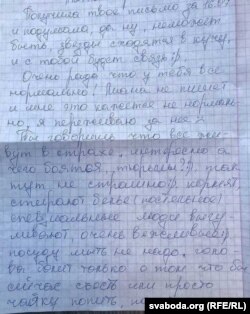 Получила твоё письмо за 16.07
и подумала, да ну, не может
быть, звезды сходятся в кучу,
и с тобой будет связь?).
Очень рада что у тебя всё
нормально! Мама не пишет
и мне это кажется не нормаль
но, я переживаю за неё?
Ты говоришь что все жи-
вут в страхе, интересно а
чего боятся, тюрьмы?). так
тут не страшно)). кормят,
стирают бельё (постельное)
специальные люди выгу-
ливают, очень вежливые)).
посуду мыть не надо, голо
ва болит только о том что бы
сейчас съесть или просто
чайку попить,
svaboda.org (RFE/RL)